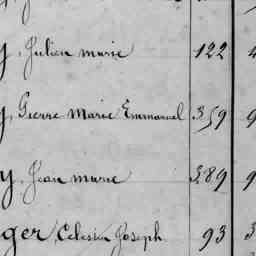 y, Julien marie 122 4
y, Pierre Marie Emmanuel 359 9
y, Jean marie 389 9
ger, Celestin Joseph 93 3